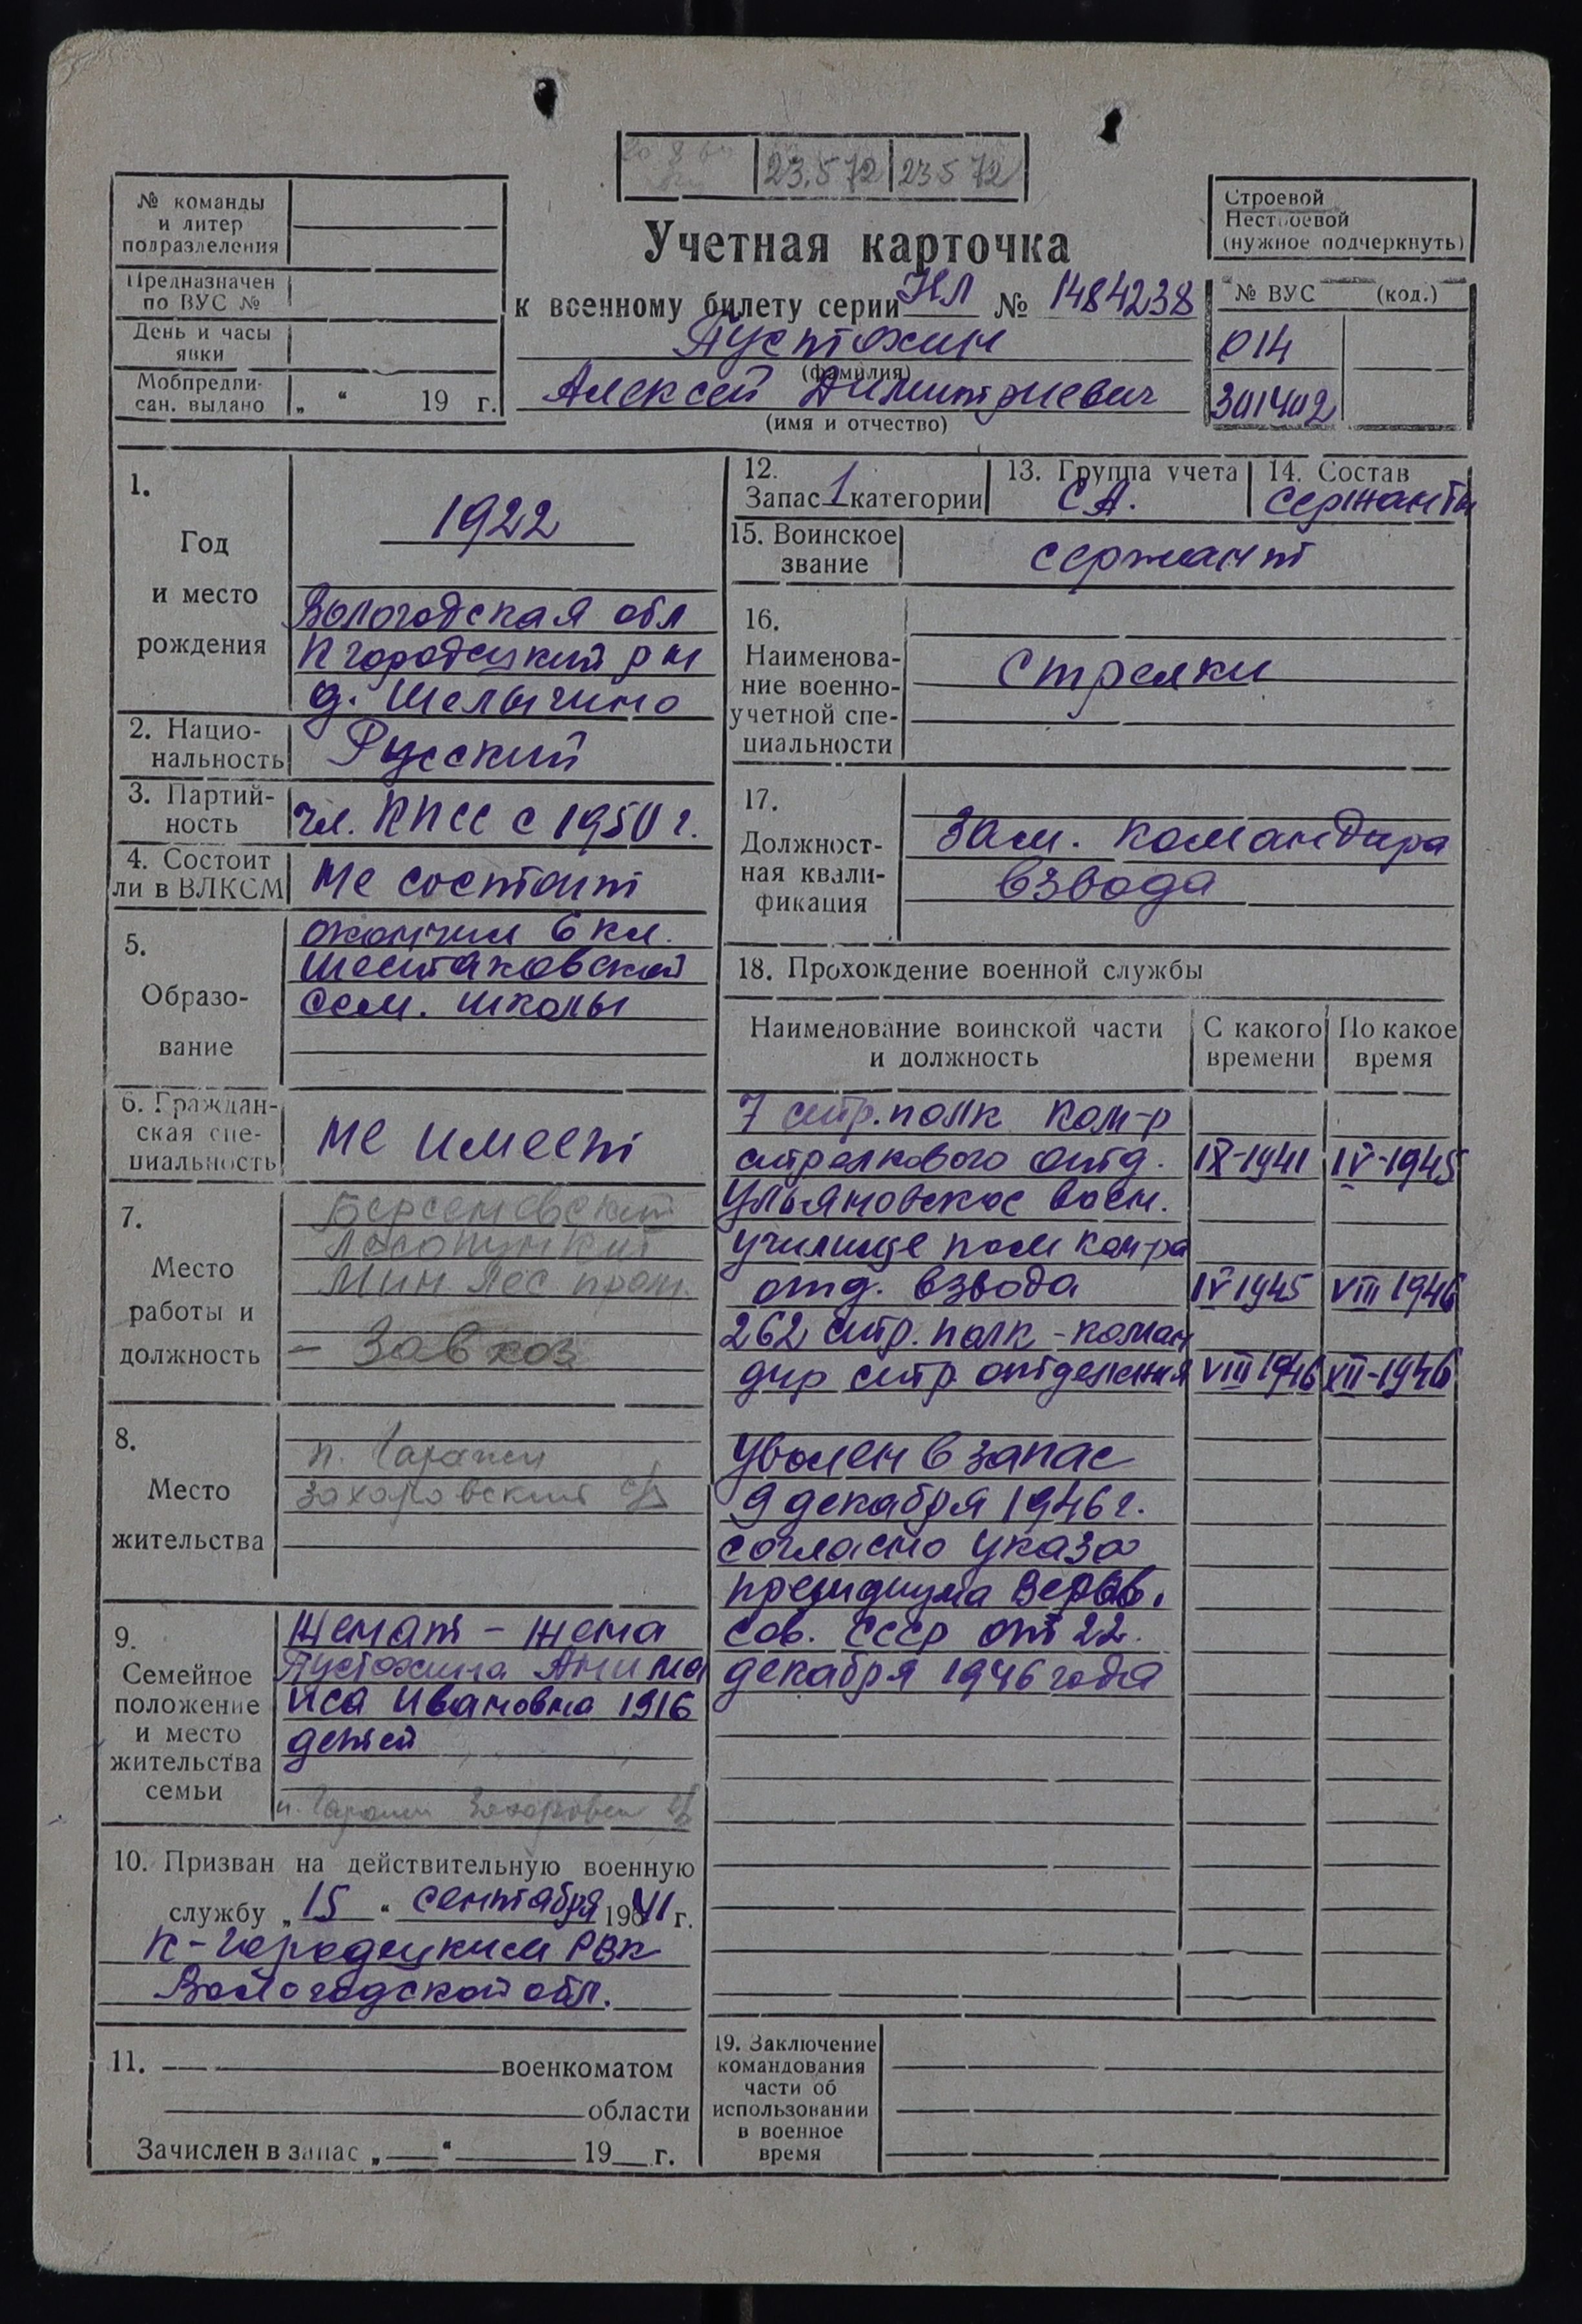 23.5 72 23 5 72
№ команды
и литер
подразделения
Предназначен
по ВУС №
День и часы
явки
Мобпредпи-
сан. выдано „ “ 19 г.
Учетная карточка
к военному билету серии НЛ № 1484238
Пустохин
(фамилия)
Алексей Димитриевич
(имя и отчество)
Строевой
Нестроевой
(нужное подчеркнуть)
№ ВУС (код.)
014
301402
1.
Год
и место
рождения
1922
Вологодская обл
К городецкий р н
д. Шелыгино
2. Нацио-
нальность Русский
3. Партий-
ность чл. КПСС с 1950 г.
4. Состоит
ли в ВЛКСМ Не состоит
5.
Образо-
вание
окончил 6 кл.
Шестаковской
сем. школы
6. Граждан-
ская спе-
циальность не имеет
7.
Место
работы и
должность
Берсеневский
Лесопункт
Мин лес пром.
– Завхоз
8.
Место
жительства
п. Гаражи
Захаровский с/с
9.
Семейное
положение
и место
жительства
семьи
Женат – жена
Пустохина Анима
иса Ивановна 1916
детей
п. Гаражи с/с
10. Призван на действительную военную
службу „ 15 “ сентября 1941 г.
К-Городецким РВК
Вологодской обл.
11. военкоматом
области
Зачислен в запас „ “ 19 г.
12.
Запас 1 категории
13. Группа учета
СА.
14. Состав
сержанты
15. Воинское
звание сержант
16.
Наименова-
ние военно-
учетной спе-
циальности
Стрелки
17.
Должност-
ная квали-
фикация
Зам. командира
взвода
18. Прохождение военной службы
Наименование воинской части
и должность
С какого
времени
По какое
время
7 стр. полк Ком-р
стрелкового отд. IX-1941 IV-1945
Ульяновское воен.
училище пом ком-ра
отд. взвода IV 1945 VIII 1946
262 стр. полк - коман
дир стр. отделения VIII 1946 XII-1946
уволен в запас
9 декабря 1946 г.
согласно указа
президиума Верхов.
сов. СССР от 22.
декабря 1946 года
19. Заключение
командования
части об
использовании
в военное
время